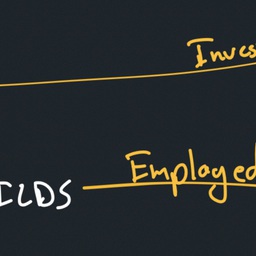 Inves
ILDS Employed